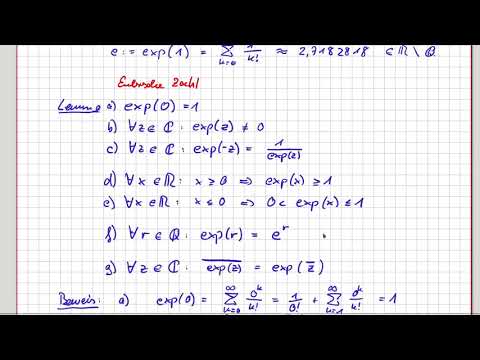 e := exp(1) = ∑_{k=0}^{∞} 1/k! ≈ 2,7182818 ∈ ℝ \ ℚ
Eulersche Zahl
Lemma a) exp(0) = 1
b) ∀z∈ℂ: exp(z) ≠ 0
c) ∀z∈ℂ: exp(-z) = 1/exp(z)
d) ∀x∈ℝ: x ≥ 0 ⇒ exp(x) ≥ 1
e) ∀x∈ℝ: x ≤ 0 ⇒ 0 < exp(x) ≤ 1
f) ∀r∈ℚ: exp(r) = e^r
g) ∀z∈ℂ: \overline{exp(z)} = exp(\overline{z})
Beweis: a) exp(0) = ∑_{k=0}^{∞} 0^k/k! = 1/0! + ∑_{k=1}^{∞} 0^k/k! = 1